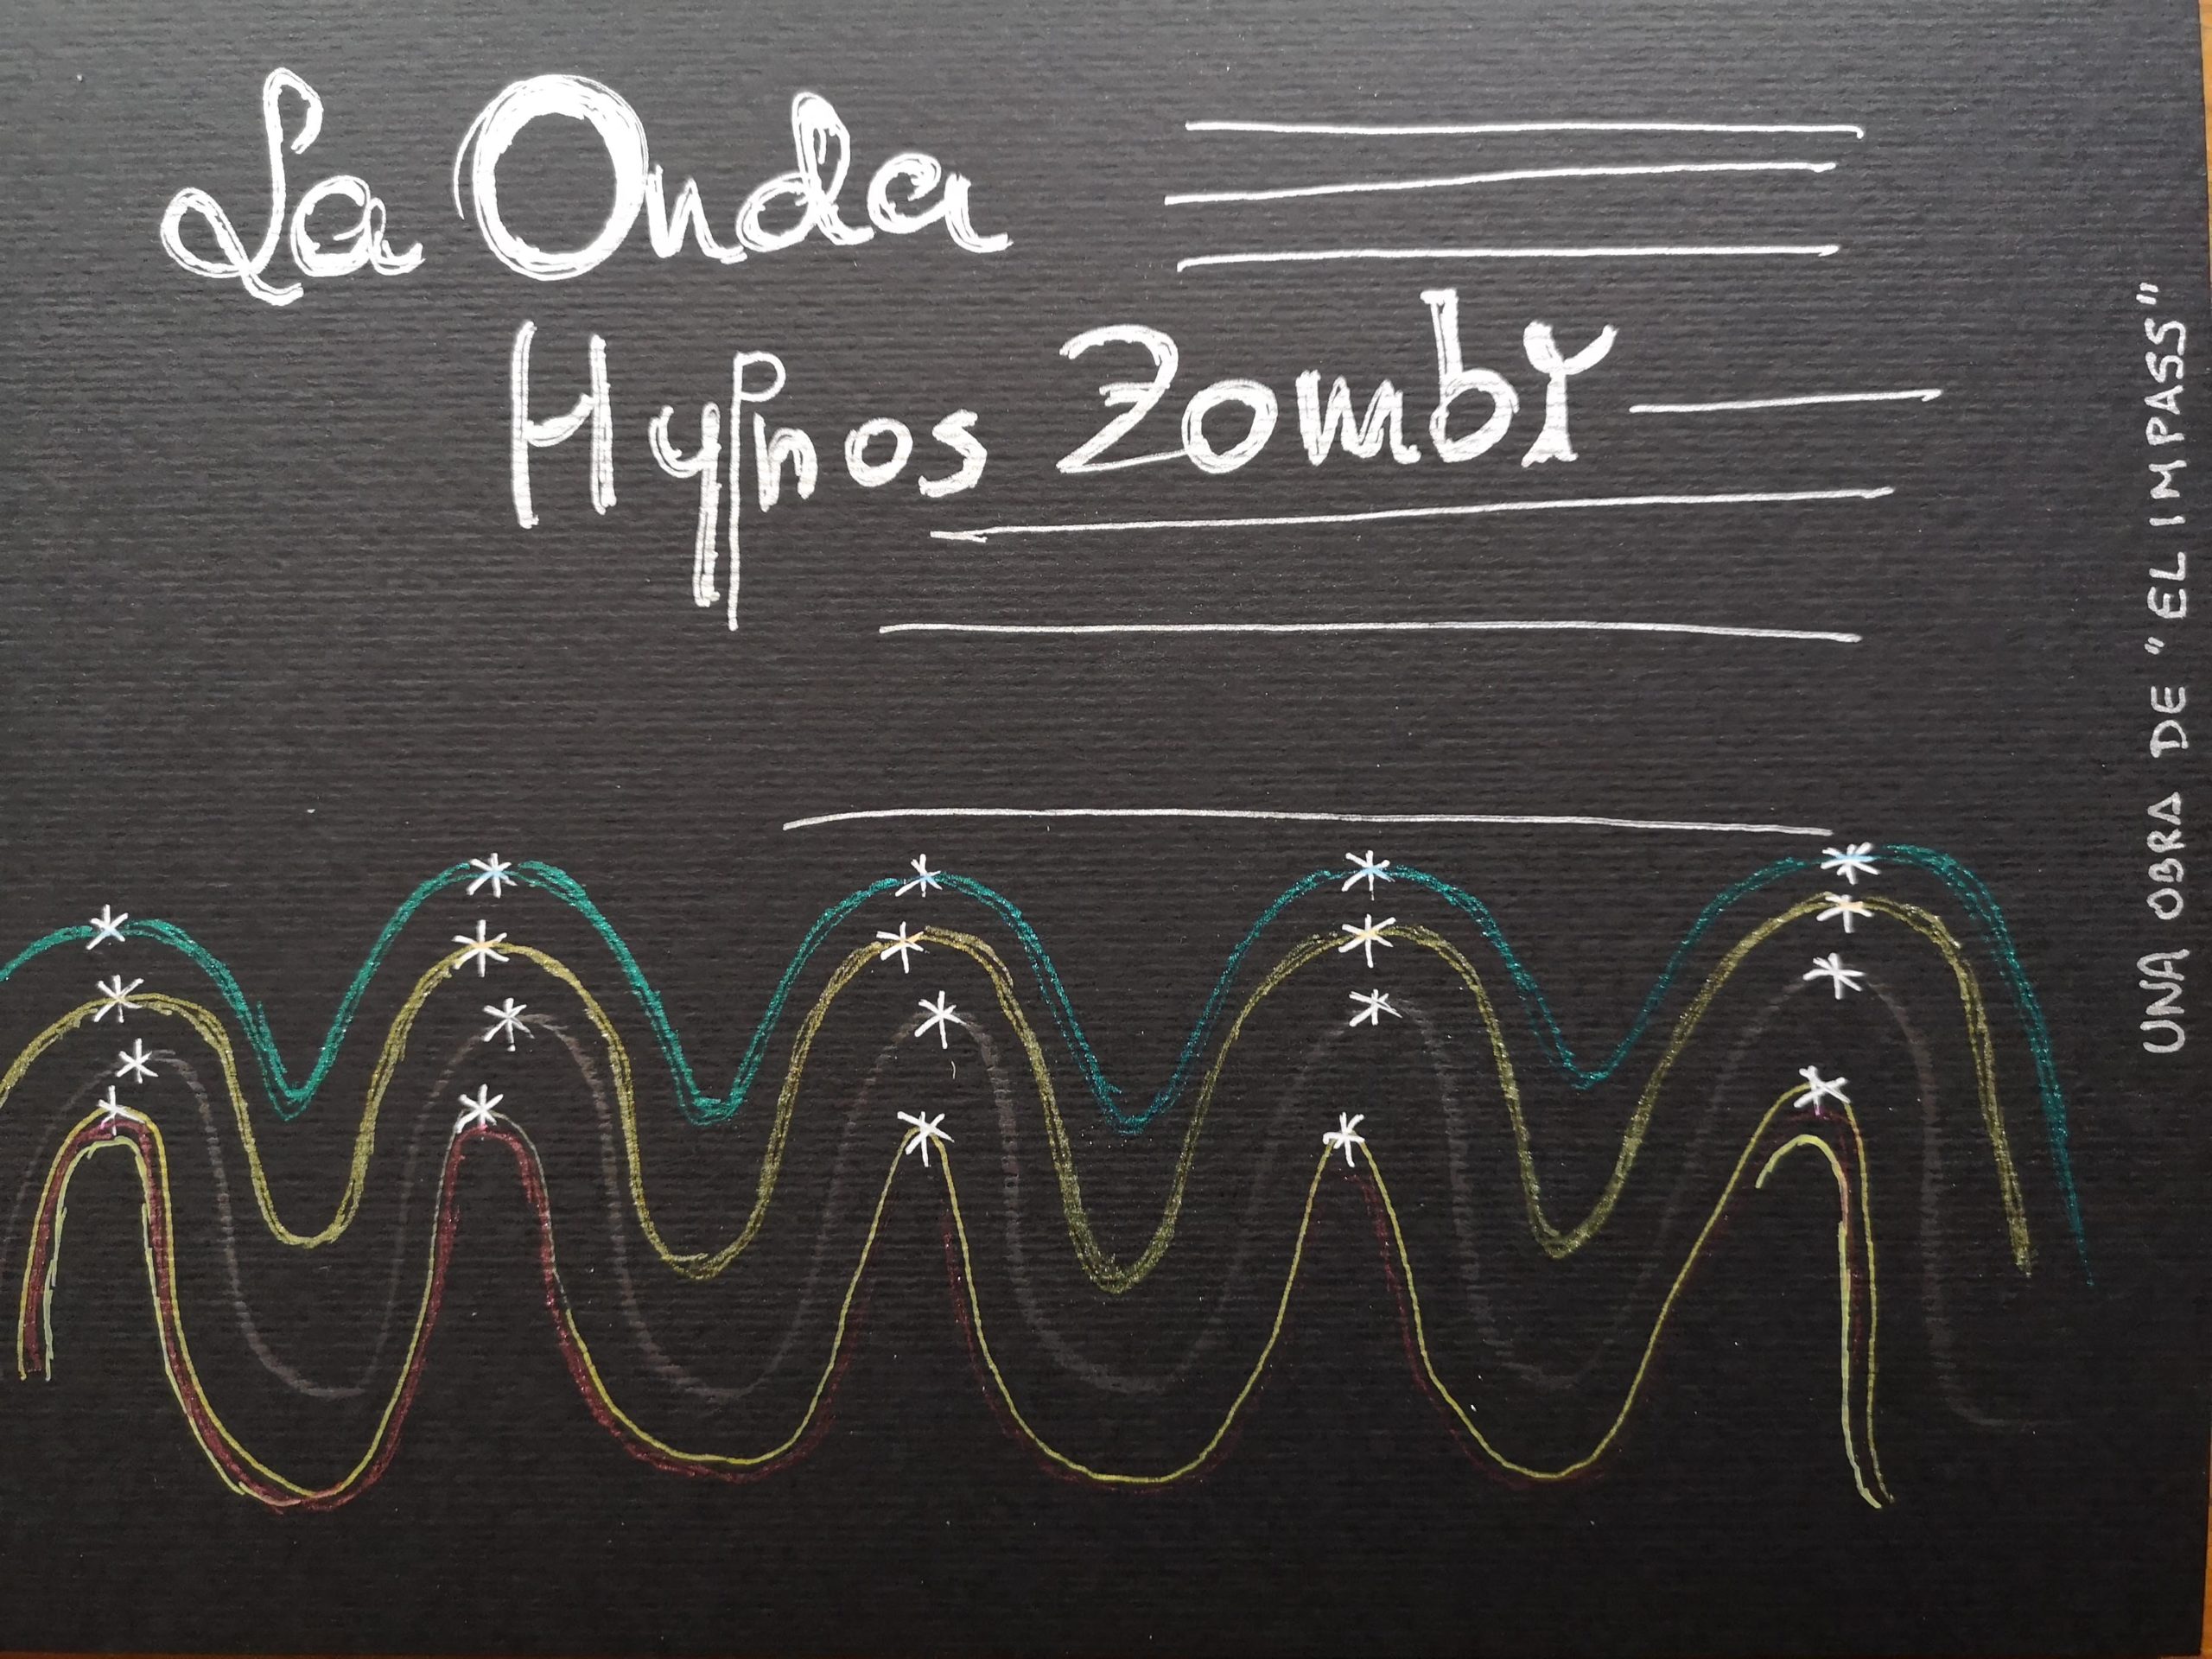 La Onda
Hypnos Zombi
UNA OBRA DE "EL IMPASS"